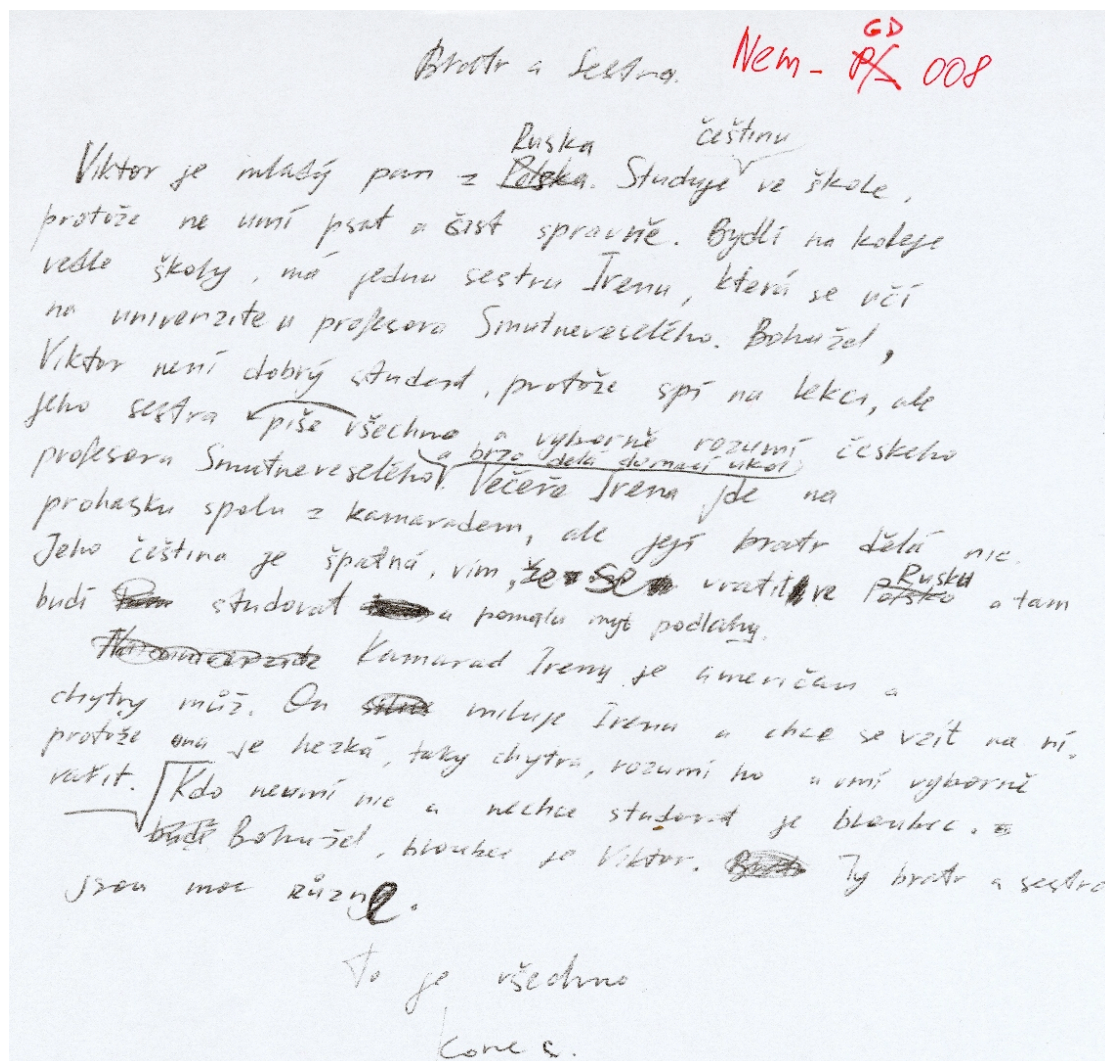 Bratr a Sestra. Nem - GD P/S 008
Ruska češtinu
Viktor je mladý pan z Polska. Studuje ve škole,
protože ne umí psat a čist spravně. Bydlí na koleje
vedle školy, má jednu sestru Irenu, která se učí
na univerzite u profesora Smutneveselého. Bohužel,
Viktor není dobrý student, protože spí na lekci, ale
jeho sestra piše všechno a vyborně rozumí českeho
a brzo delá domací ukol
profesora Smutneveselého. Večeře Irena jde na
prohasku spolu z kamaradem, ale její bratr dělá nic.
Jeho čeština je špatná, vím, že se vratil ve Polsko Rusku a tam
budí studovat a pomalu myt podlahy.
Kamarad Ireny je američan a
chytry můž. On silně miluje Irenu a chce se vzít na ní,
protože ona je hezká, taky chytra, rozumí ho a umí vyborně
vařit. Kdo neumí nic a nechce studovat je bloubec.
budě Bohužel, bloubec je Viktor. Ty bratr a sestra
jsou moc různe.
To je všechno
Konec.